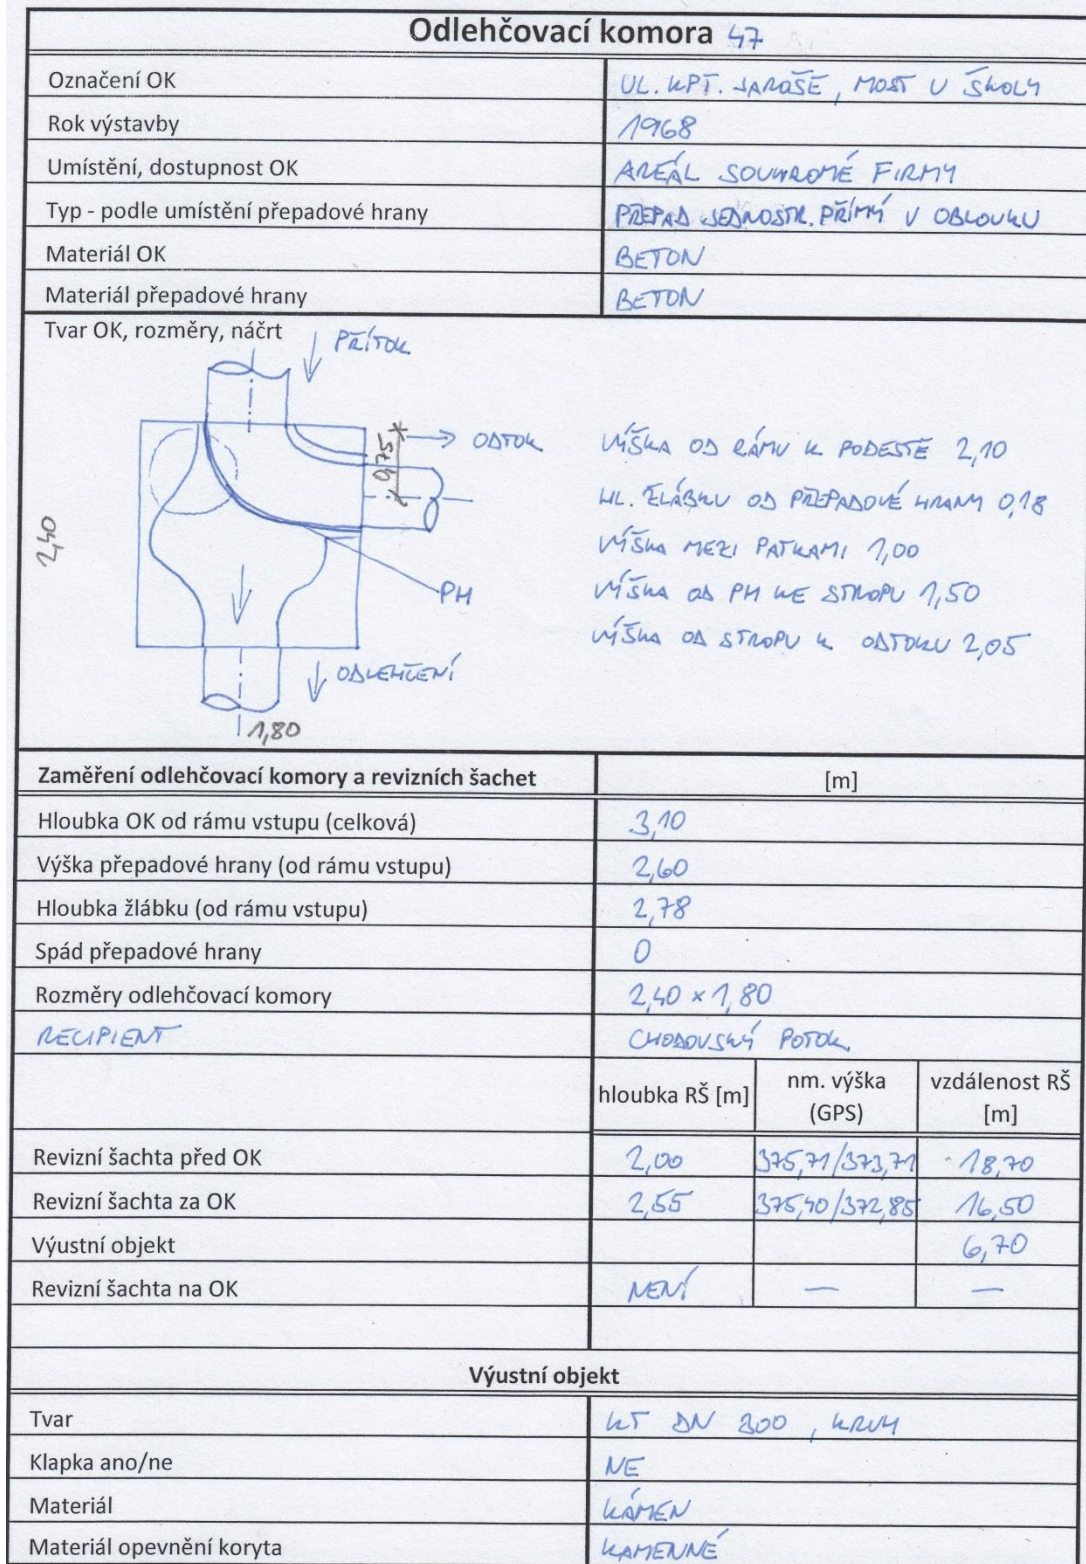 Odlehčovací komora 47
Označení OK UL. KPT. JAROŠE, MOST U ŠKOLY
Rok výstavby 1968
Umístění, dostupnost OK AREÁL SOUKROMÉ FIRMY
Typ - podle umístění přepadové hrany PŘEPAD JEDNOSTR. PŘÍMÝ V OBLOUKU
Materiál OK BETON
Materiál přepadové hrany BETON
Tvar OK, rozměry, náčrt
PŘÍTOK
0,75
ODTOK
2,40
PH
ODLEHČENÍ
1,80
VÝŠKA OD RÁMU K PODESTĚ 2,10
HL. ŽLÁBKU OD PŘEPADOVÉ HRANY 0,18
VÝŠKA MEZI PATKAMI 1,00
VÝŠKA OD PH KE STROPU 1,50
VÝŠKA OD STROPU K ODTOKU 2,05
Zaměření odlehčovací komory a revizních šachet [m]
Hloubka OK od rámu vstupu (celková) 3,10
Výška přepadové hrany (od rámu vstupu) 2,60
Hloubka žlábku (od rámu vstupu) 2,78
Spád přepadové hrany 0
Rozměry odlehčovací komory 2,40 × 1,80
RECIPIENT CHODOVSKÝ POTOK
hloubka RŠ [m] nm. výška (GPS) vzdálenost RŠ [m]
Revizní šachta před OK 2,00 375,71/373,71 18,70
Revizní šachta za OK 2,55 375,40/372,85 16,50
Výustní objekt 6,70
Revizní šachta na OK NENÍ — —
Výustní objekt
Tvar KT DN 300, KRUH
Klapka ano/ne NE
Materiál KÁMEN
Materiál opevnění koryta KAMENNÉ